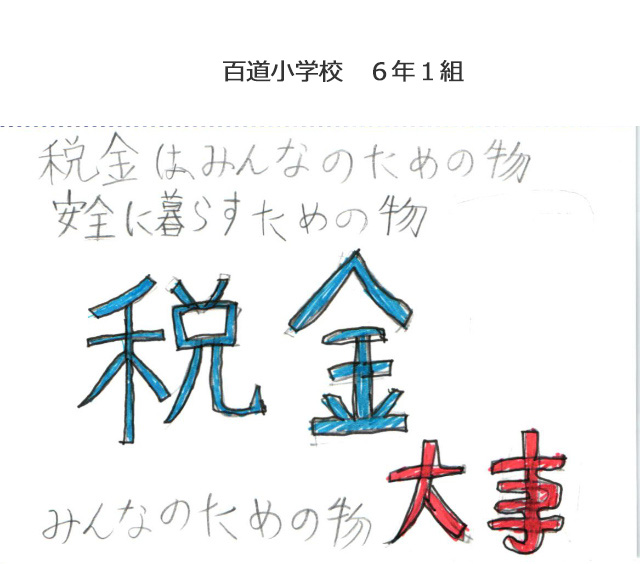 百道小学校　６年１組
税金は、みんなのための物
安全に暮らすための物
税金
大事
みんなのための物